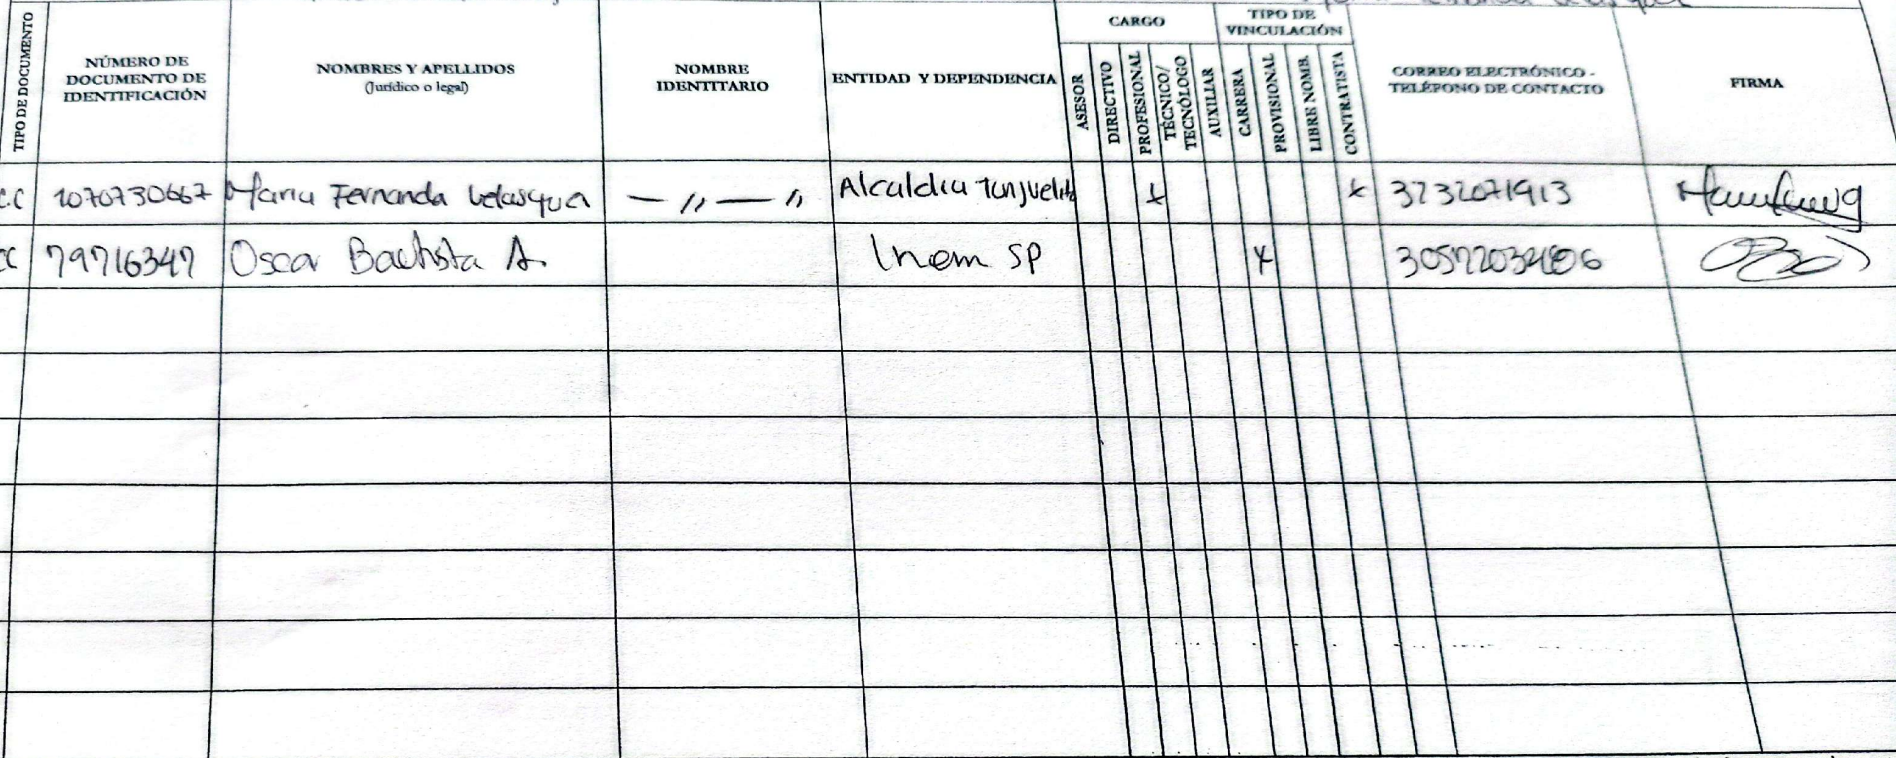 TIPO DE DOCUMENTO
NÚMERO DE
DOCUMENTO DE
IDENTIFICACIÓN
NOMBRES Y APELLIDOS
(Jurídico o legal)
NOMBRE
IDENTITARIO
ENTIDAD Y DEPENDENCIA
CARGO
ASESOR
DIRECTIVO
PROFESIONAL
TÉCNICO/
TECNÓLOGO
AUXILIAR
TIPO DE
VINCULACIÓN
CARRERA
PROVISIONAL
LIBRE NOMB.
CONTRATISTA
CORREO ELECTRÓNICO -
TELÉFONO DE CONTACTO
FIRMA
C.C 1070730667 Maria Fernanda Velasquez — 〃 — 〃 Alcaldia Tunjuelito x x 3232071913
CC 79716347 Oscar Bautista A. SP x